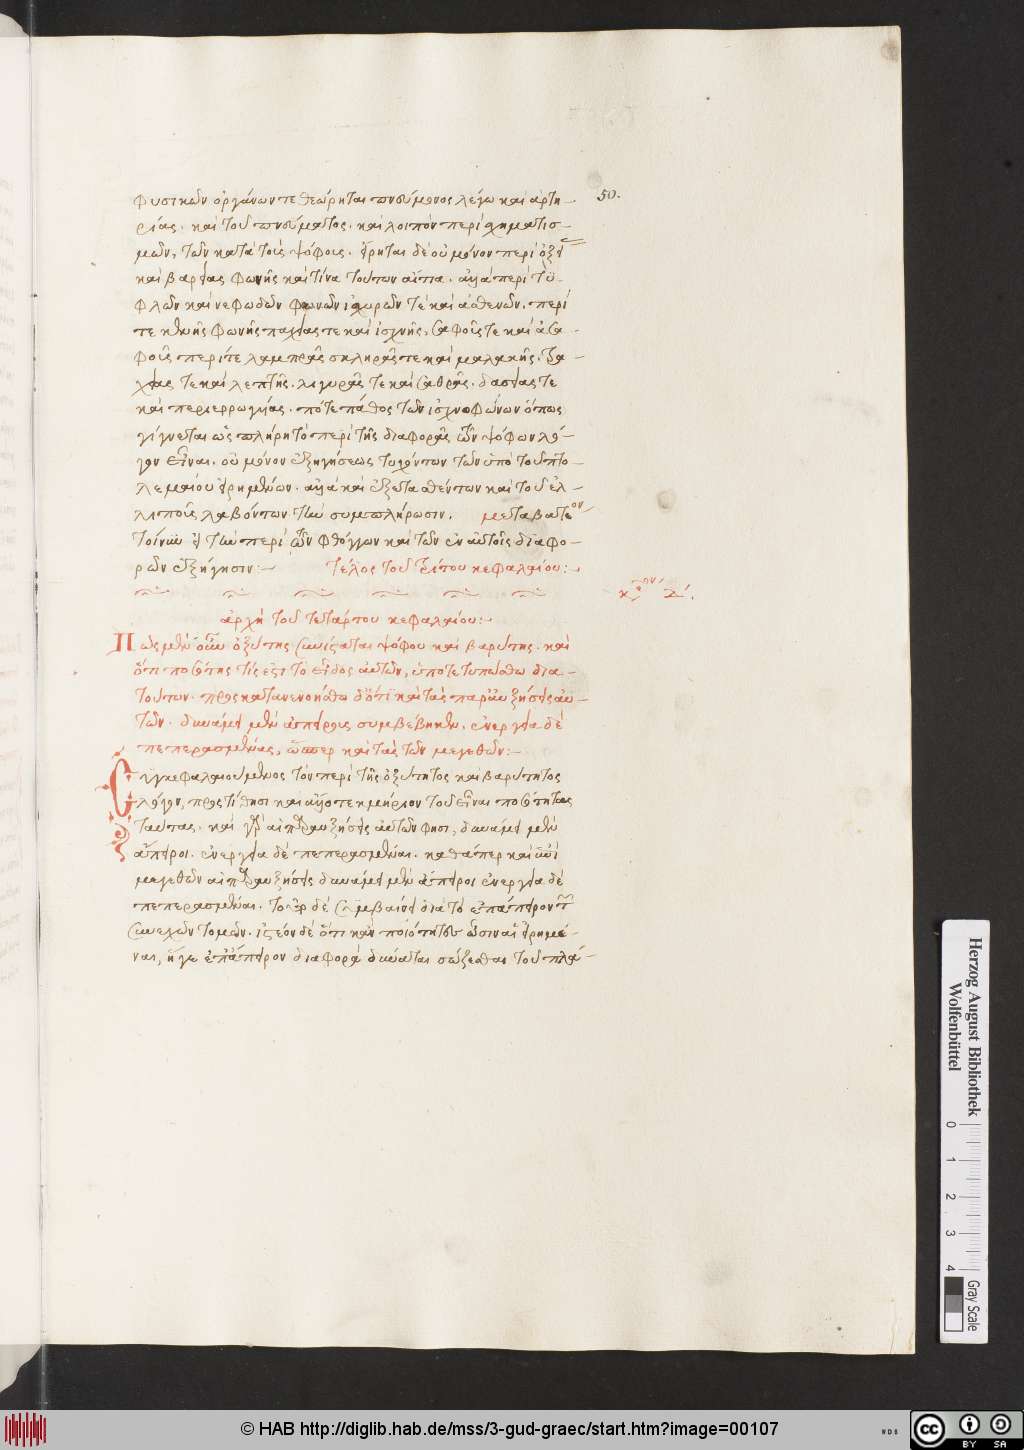 φυσικῶν ὀργάνων τεθεώρηται πνεύμονος λέγω καὶ ἀρτη- 50.
ρίας. καὶ τοῦ πνεύματος. καὶ λοιπὸν περὶ σχηματισ-
μῶν, τῶν κατὰ τοὺς ψόφους. εἴρηται δὲ οὐ μόνον περὶ ὀξεί
καὶ βαρείας φωνῆς καὶ τίνα τούτων αἴτια. ἀλλὰ περὶ τυ-
φλῶν καὶ νεφωδῶν φωνῶν ἰσχυρῶν τὲ καὶ ἀσθενῶν. περὶ
τε φωνῆς παχείας τε καὶ ἰσχνῆς, σαφοῦς τε καὶ ἀσα-
φοῦς περί τε λαμπρᾶς σκληρᾶς τε καὶ μαλακῆς.
τε καὶ λεπτῆς. λιγυρᾶς τε καὶ σαθρᾶς. δασείας τε
καὶ περιερρωγυίας. πότε πάθος τῶν ἰσχνοφώνων ὅπως
γίγνεται ὡς πλήρη τὸ περὶ τῆς διαφορᾶς τῶν ψόφων λό-
γον εἶναι. οὐ μόνον ἐξηγήσεως τυχόντων τῶν ὑπὸ τοῦ πτο-
λεμαίου εἰρημένων. ἀλλὰ καὶ ἐξετασθέντων καὶ τοῦ ἐλ-
λιποῦς λαβόντων τὴν συμπλήρωσιν. μεταβατέον
τοίνυν ἐπὶ τὴν περὶ τῶν φθόγγων καὶ τῶν ἐν αὐτοῖς διαφο-
ρῶν ἐξήγησιν:- τέλος τοῦ τρίτου κεφαλαίου:-
ἀρχὴ τοῦ τετάρτου κεφαλαίου:-
Πῶς μὲν οὖν ὀξύτης συνίσταται ψόφου καὶ βαρύτης. καὶ
ὅτι ποσότης τίς ἐστι τὸ εἶδος αὐτῶν, ὑποτετυπώσθω δια-
τούτων. προσκατανενοήσθω διότι καὶ τὰς παραυξήσεις αὐ-
τῶν. δυνάμει μὲν ἀπείρους συμβέβηκεν. ἐνεργεία δὲ
πεπερασμένας, ὥσπερ καὶ τὰς τῶν μεγεθῶν:-
Συγκεφαλαιούμενος τὸν περὶ τῆς ὀξύτητος καὶ βαρύτητος
λόγον, προστίθησι καὶ ἄλλο τεκμήριον τοῦ εἶναι ποσότητας
ταύτας. καὶ γὰρ αἱ παραυξήσεις αὐτῶν φησι, δυνάμει μὲν
ἄπειροι. ἐνεργεία δὲ πεπερασμέναι. καθάπερ καὶ
μεγεθῶν αἱ παραυξήσεις δυνάμει μὲν ἄπειροι ἐνεργεία δὲ
πεπερασμέναι. τοῦτο δὲ συμβαίνει διὰ τὸ ἐπ' ἄπειρον τὴν
συνεχῶν τομήν. ἰστέον δὲ ὅτι κἂν ποιότητες ὦσιν αἱ εἰρημέ-
ναι, ἥγε ἐπ' ἄπειρον διαφορὰ δύναται σώζεσθαι τοῦ πλά-
Herzog August Bibliothek
Wolfenbüttel
0 1 2 3 4
Gray Scale
© HAB http://diglib.hab.de/mss/3-gud-graec/start.htm?image=00107
cc BY SA